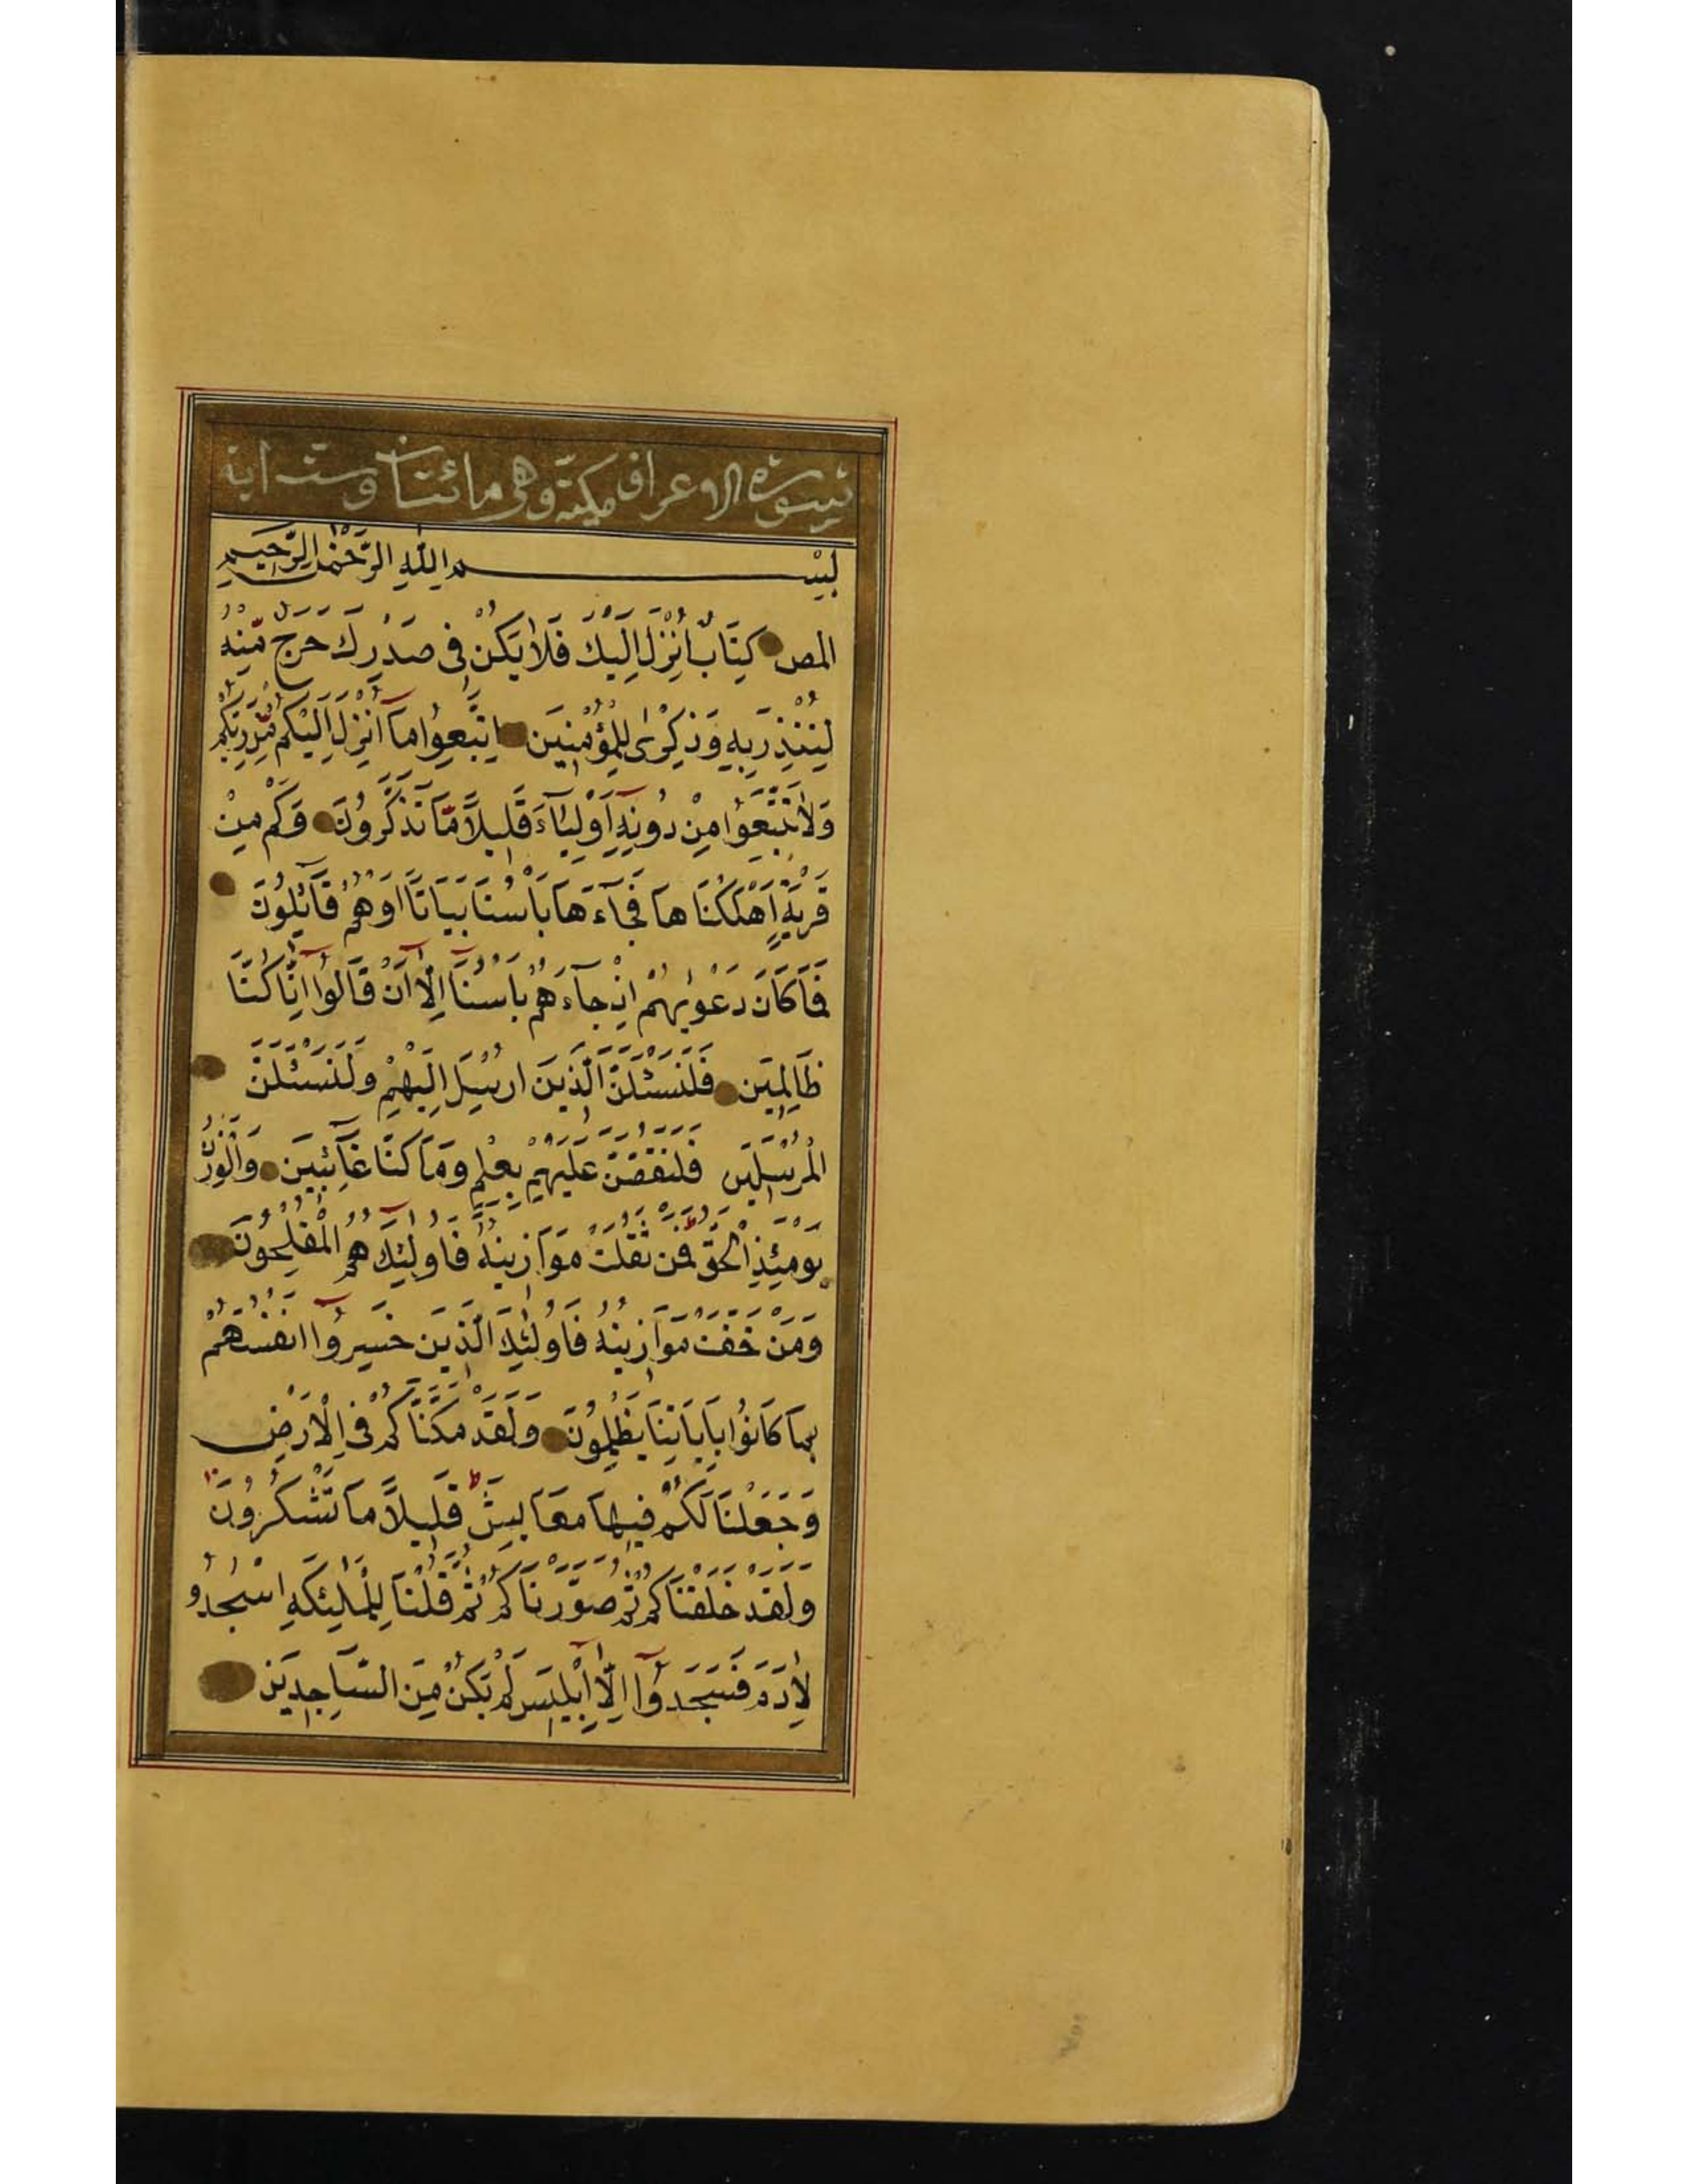 سورة الاعراف مكية وهي مائتان وست اية
بِسْمِ اللّٰهِ الرَّحْمٰنِ الرَّحِيمِ
المص كِتَابٌ اُنْزِلَ اِلَيْكَ فَلَا يَكُنْ فِى صَدْرِكَ حَرَجٌ مِّنْهُ
لِتُنْذِرَ بِهِ وَذِكْرٰى لِلْمُؤْمِنِينَ اِتَّبِعُوا مَآ اُنْزِلَ اِلَيْكُمْ مِّنْ رَبِّكُمْ
وَلَا تَتَّبِعُوا مِنْ دُونِهِٓ اَوْلِيَآءَ قَلِيلًا مَّا تَذَكَّرُونَ وَكَمْ مِنْ
قَرْيَةٍ اَهْلَكْنَاهَا فَجَآءَهَا بَاْسُنَا بَيَاتًا اَوْ هُمْ قَآئِلُونَ
فَمَا كَانَ دَعْوٰيهُمْ اِذْ جَآءَهُمْ بَاْسُنَآ اِلَّآ اَنْ قَالُوٓا اِنَّا كُنَّا
ظَالِمِينَ فَلَنَسْئَلَنَّ الَّذِينَ اُرْسِلَ اِلَيْهِمْ وَلَنَسْئَلَنَّ
الْمُرْسَلِينَ فَلَنَقُصَّنَّ عَلَيْهِمْ بِعِلْمٍ وَمَا كُنَّا غَآئِبِينَ وَالْوَزْنُ
يَوْمَئِذٍ الْحَقُّ فَمَنْ ثَقُلَتْ مَوَازِينُهُ فَاُولٰئِكَ هُمُ الْمُفْلِحُونَ
وَمَنْ خَفَّتْ مَوَازِينُهُ فَاُولٰئِكَ الَّذِينَ خَسِرُوٓا اَنْفُسَهُمْ
بِمَا كَانُوا بِاٰيَاتِنَا يَظْلِمُونَ وَلَقَدْ مَكَّنَّاكُمْ فِى الْاَرْضِ
وَجَعَلْنَا لَكُمْ فِيهَا مَعَايِشَ قَلِيلًا مَا تَشْكُرُونَ
وَلَقَدْ خَلَقْنَاكُمْ ثُمَّ صَوَّرْنَاكُمْ ثُمَّ قُلْنَا لِلْمَلٰئِكَةِ اسْجُدُو
لِاٰدَمَ فَسَجَدُوٓا اِلَّآ اِبْلِيسَ لَمْ يَكُنْ مِنَ السَّاجِدِينَ